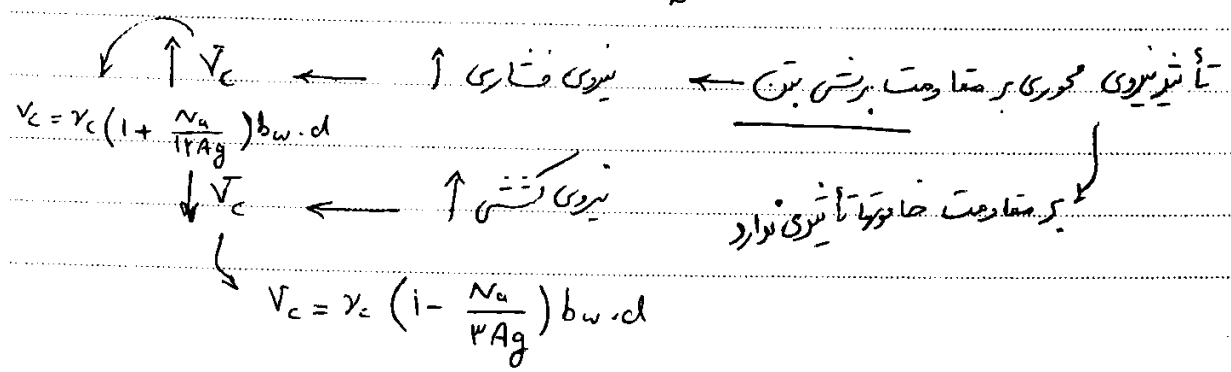 تأثیر نیروی محوری بر مقاومت برشی بتن ← نیروی فشاری ↑ ← V_c ↑
V_c = v_c (1 + N_u / ۱۲Ag) b_w . d
بر مقاومت خاموتها تأثیری ندارد
نیروی کششی ↑ ← V_c ↓
V_c = v_c (1 - N_u / ۳Ag) b_w . d